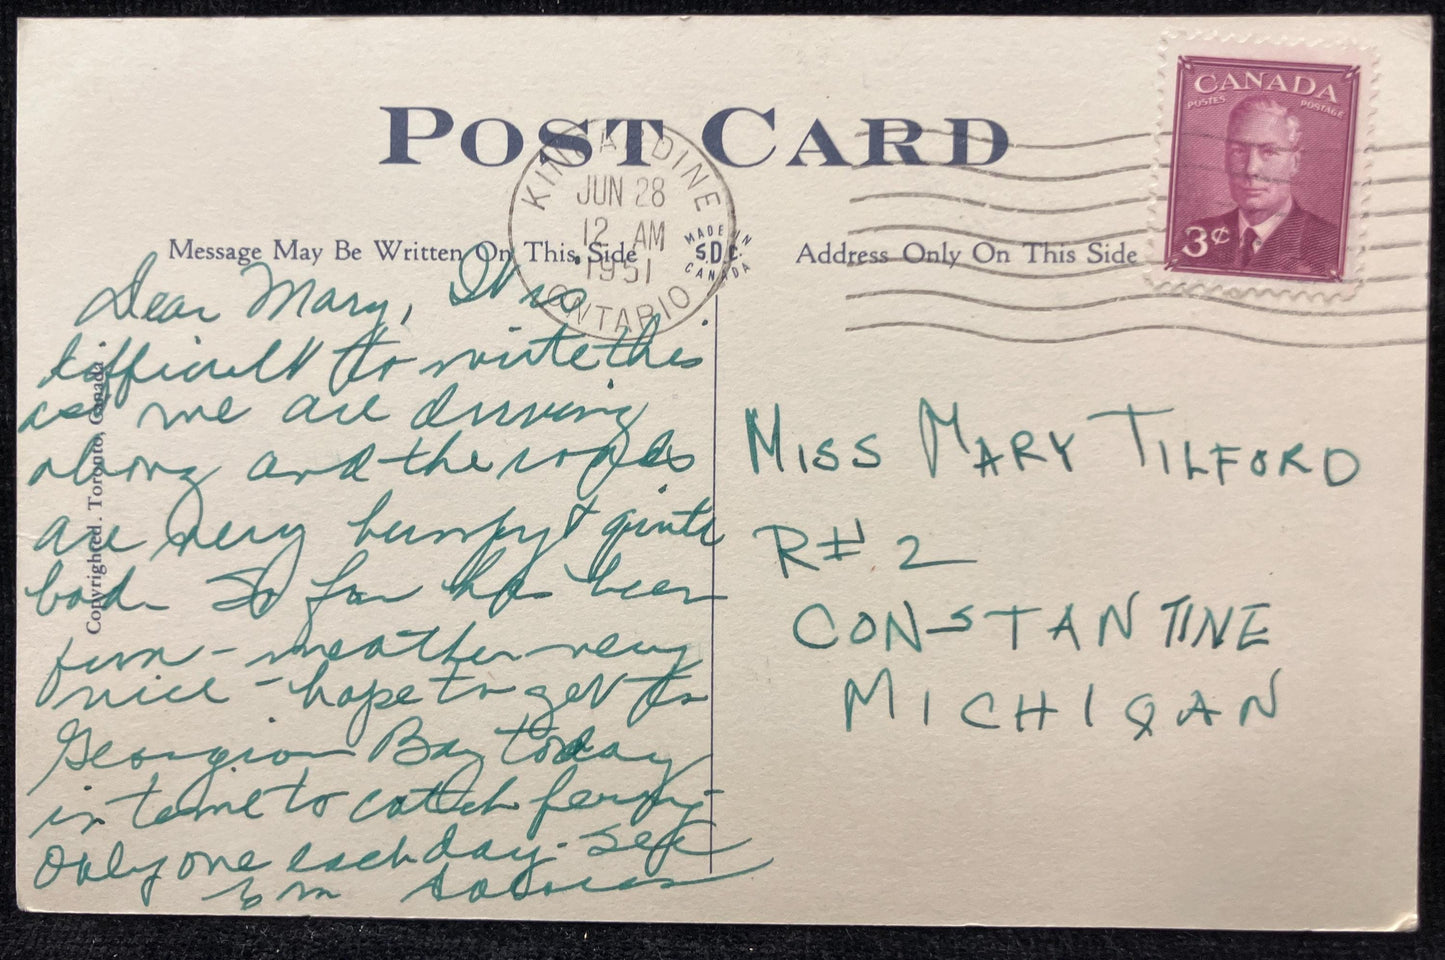 POST CARD
CANADA
POSTES POSTAGE
3¢
KINCARDINE
JUN 28
12 AM
1951
ONTARIO
MADE IN
S.D.C.
CANADA
Message May Be Written On This Side
Address Only On This Side
Copyrighted. Toronto, Canada
Dear Mary, It is
difficult to write this
as we are driving
along and the roads
are very bumpy & quite
bad. So far has been
fun - weather very
nice - hope to get to
Georgian Bay today
in time to catch ferry -
only one each day.
MISS MARY TILFORD
R# 2
CONSTANTINE
MICHIGAN